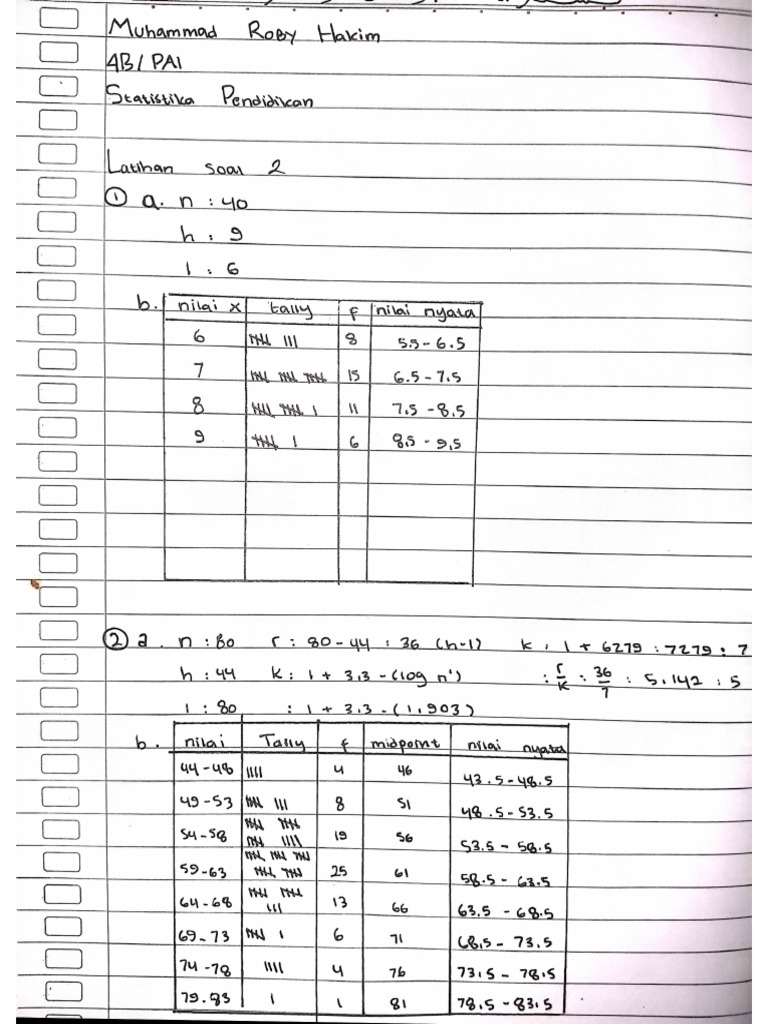 Muhammad Roby Hakim
4B/PAI
Statistika Pendidikan
Latihan soal 2
① a. n : 40
h : 9
l : 6
b. nilai x tally f nilai nyata
6 𝍸 III 8 5.5 - 6.5
7 𝍸 𝍸 𝍸 15 6.5 - 7.5
8 𝍸 𝍸 I 11 7.5 - 8.5
9 𝍸 I 6 8.5 - 9.5
② a. n : 80 r : 80 - 44 : 36 (h-l) k : 1 + 6279 : 7279 : 7
h : 44 k : 1 + 3.3 - (log n') : r/k : 36/7 : 5.142 : 5
l : 80 : 1 + 3.3 - (1.903)
b. nilai Tally f midpoint nilai nyata
44-48 IIII 4 46 43.5 - 48.5
49-53 𝍸 III 8 51 48.5 - 53.5
54-58 𝍸 𝍸 𝍸 IIII 19 56 53.5 - 58.5
59-63 𝍸 𝍸 𝍸 𝍸 𝍸 25 61 58.5 - 63.5
64-68 𝍸 𝍸 III 13 66 63.5 - 68.5
69-73 𝍸 I 6 71 68.5 - 73.5
74-78 IIII 4 76 73.5 - 78.5
79-83 I 1 81 78.5 - 83.5